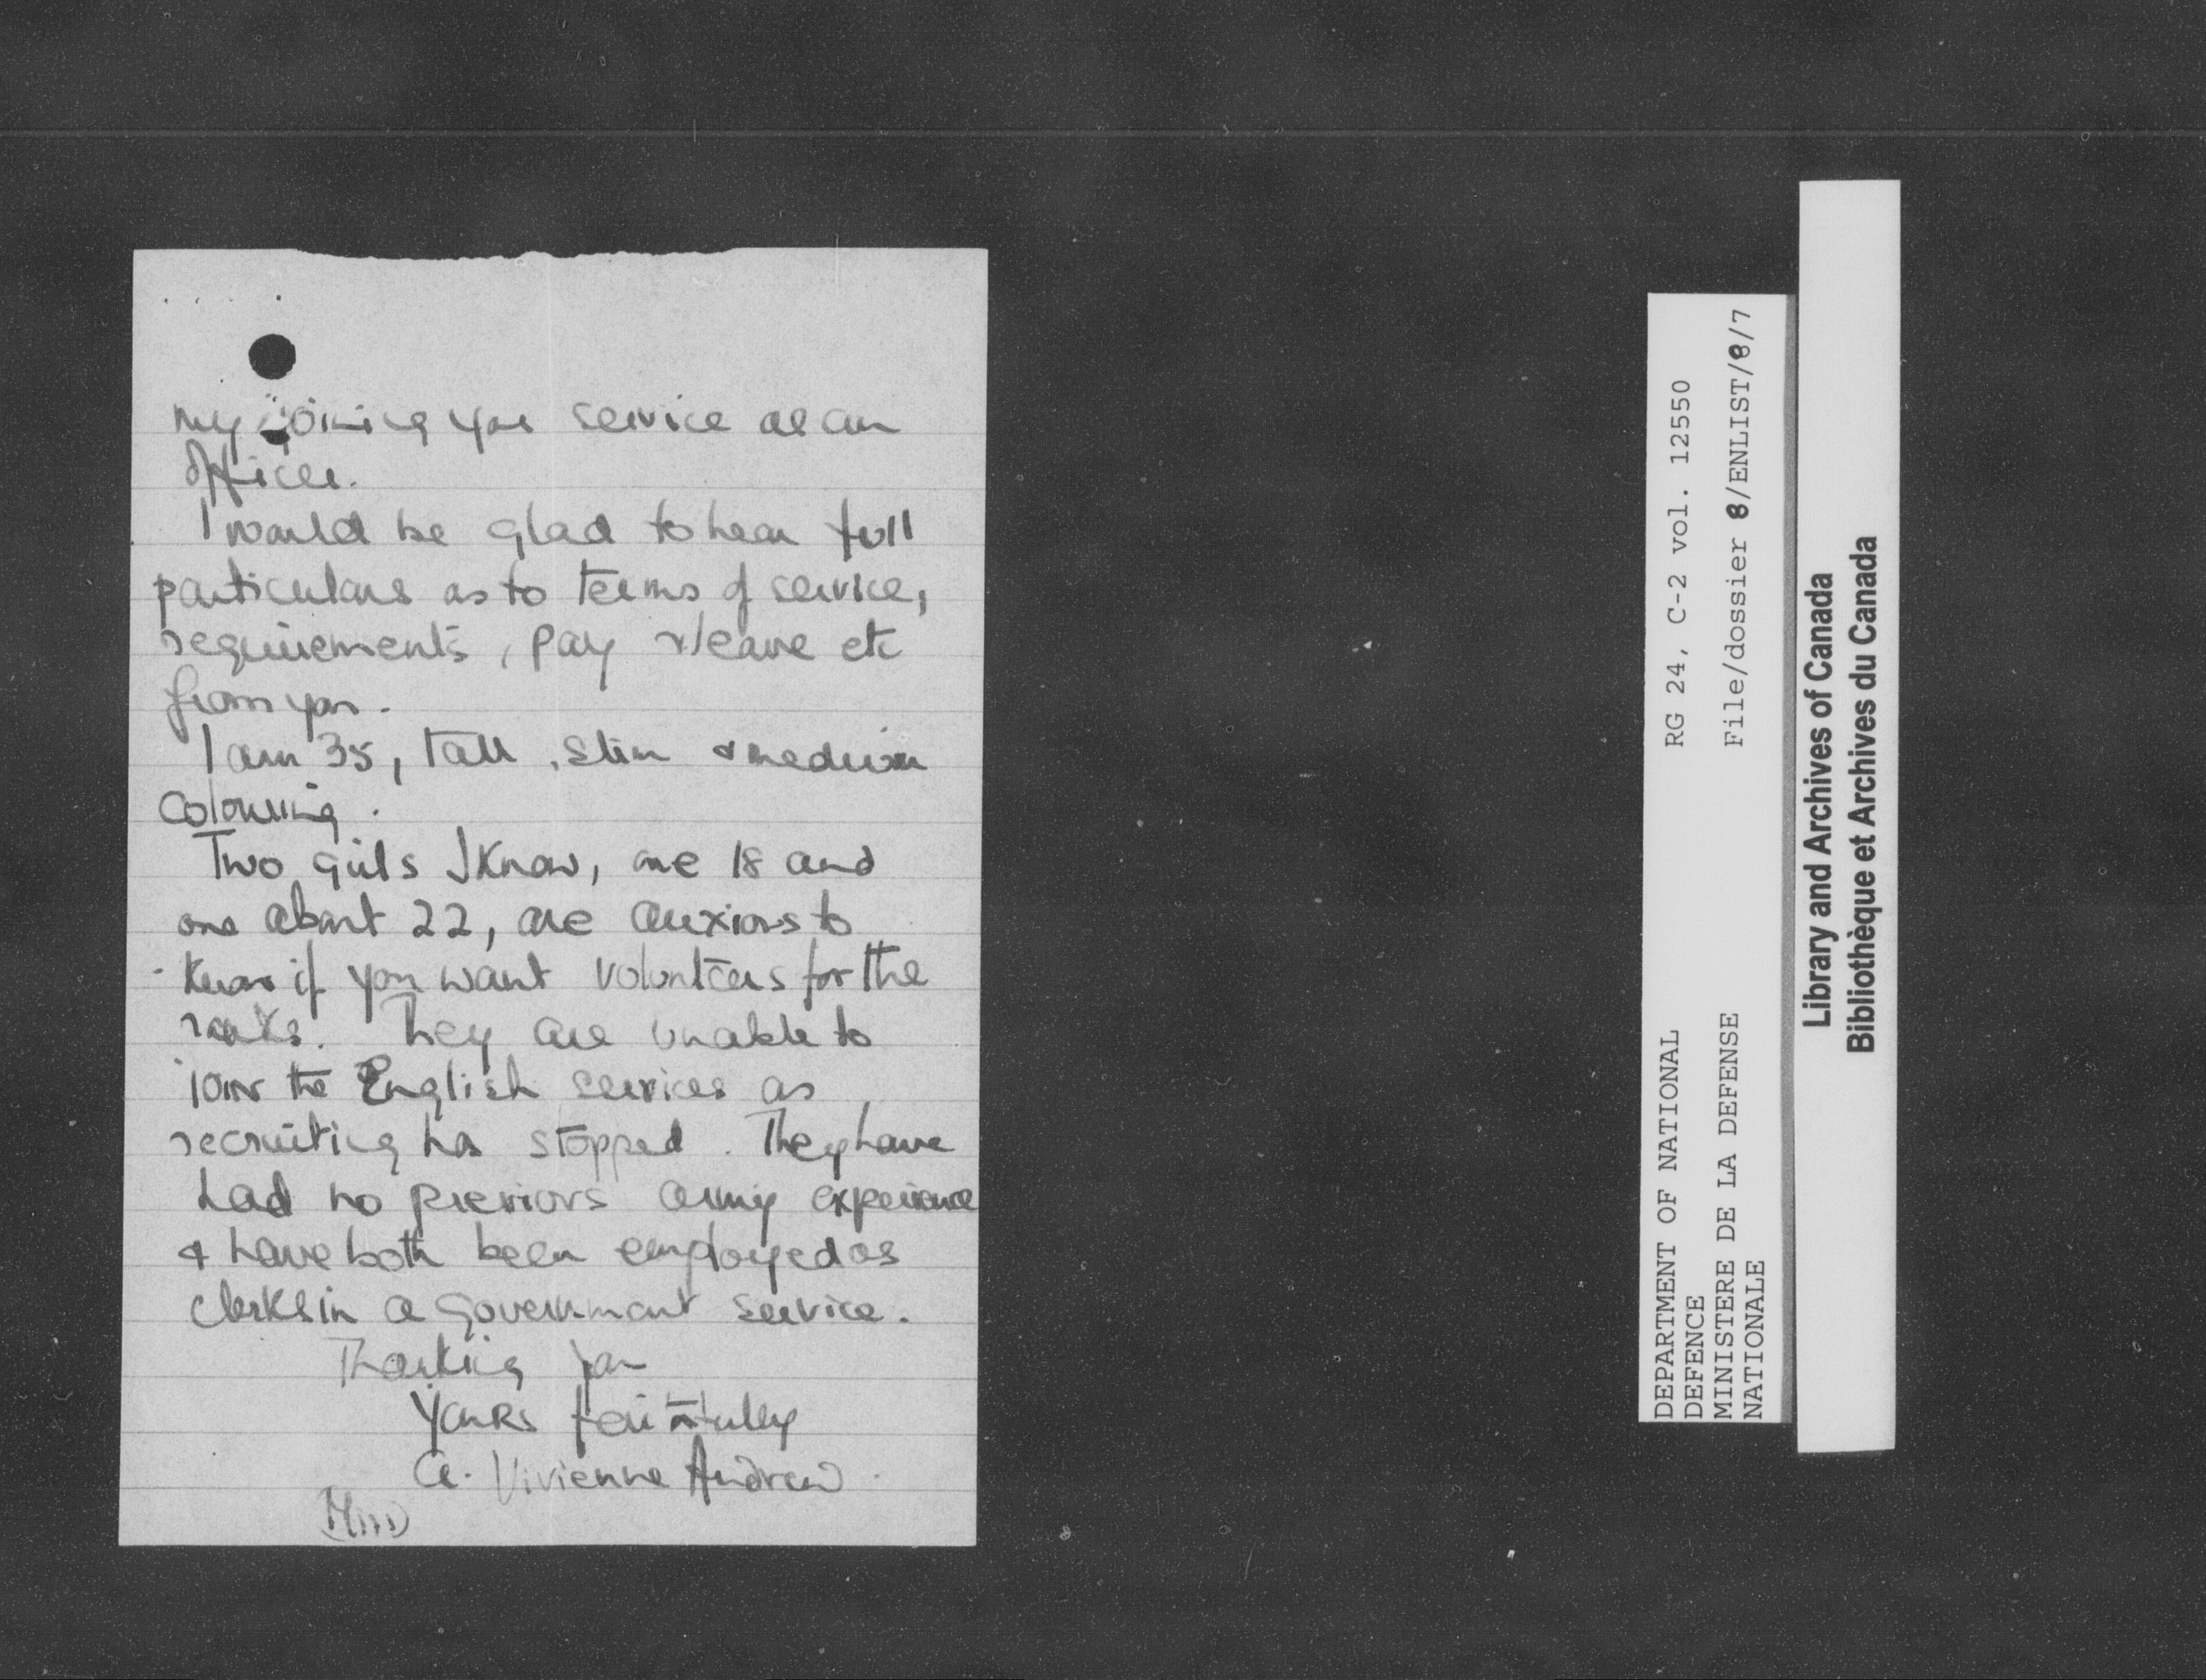 my joining your service as an
officer.
I would be glad to hear full
particulars as to terms of service,
requirements, pay & leave etc
from you.
I am 35, tall, slim & medium
colouring.
Two girls I know, one 18 and
one about 22, are anxious to
know if you want volunteers for the
ranks. They are unable to
join the English services as
recruiting has stopped. They have
had no previous army experience
& have both been employed as
clerks in a government service.
Thanking you
Yours faithfully
A. Vivienne Andrew.
(Miss)
RG 24, C-2 vol. 12550
File/dossier 8/ENLIST/8/7
DEPARTMENT OF NATIONAL
DEFENCE
MINISTERE DE LA DEFENSE
NATIONALE
Library and Archives of Canada
Bibliothèque et Archives du Canada